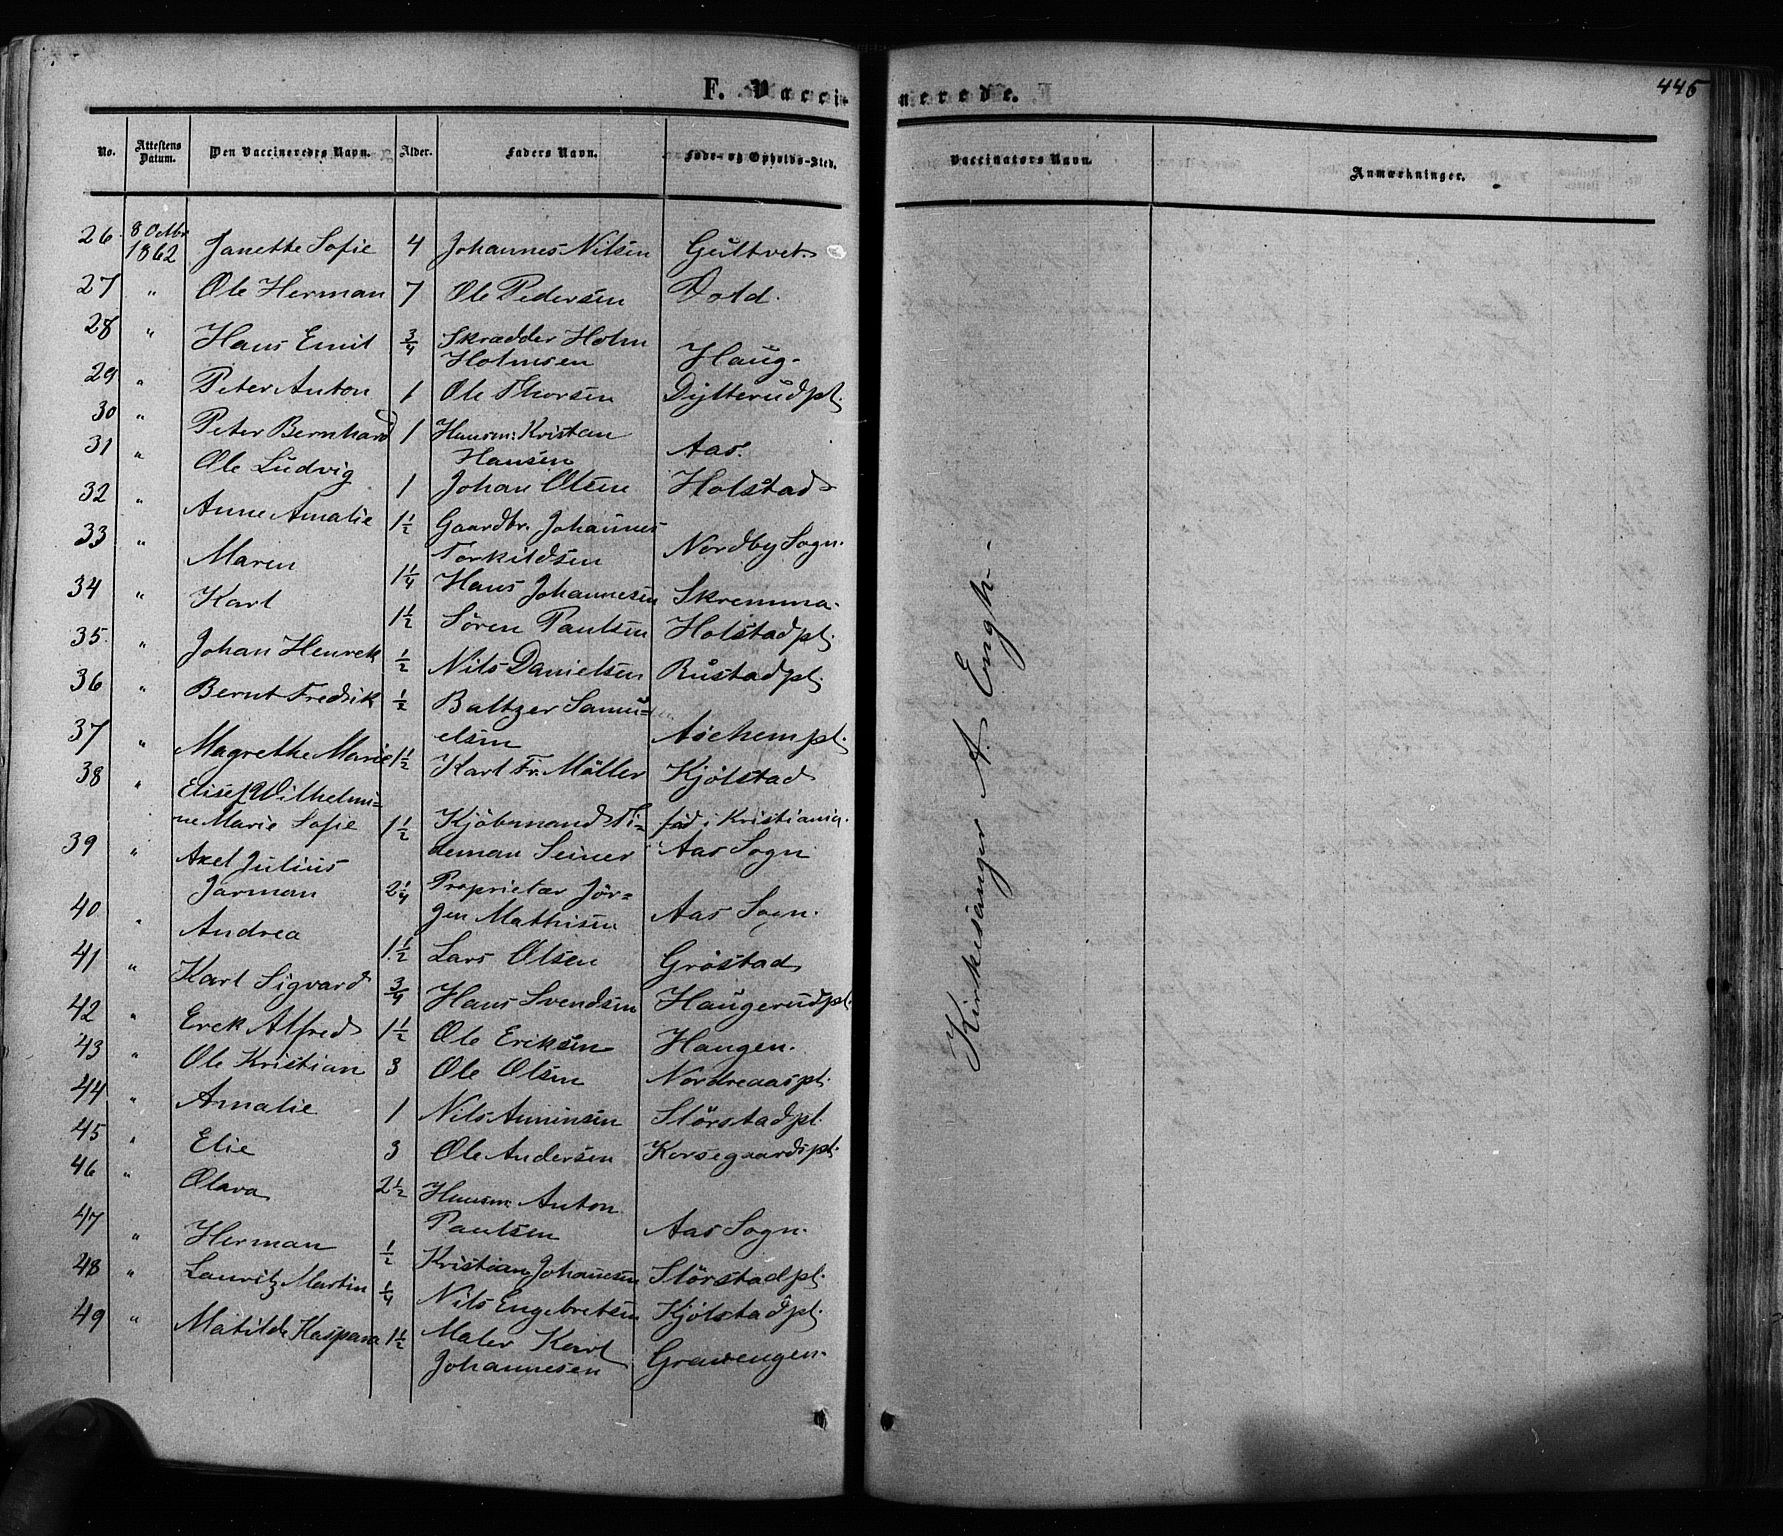 F. Vaccinerede.
445
No. Attestens Datum. Den Vaccineredes Navn. Alder. Faders Navn. Føde- og Opholds-Sted. Vaccinators Navn. Anmærkninger.
26. 8 Octbr 1862 Janette Sofie 4 Johannes Nilsen Gultvet.
27 " Ole Herman 7 Ole Pedersen Dold.
28 " Hans Emil 3/4 Skrædder Holm
Holmsen Haug.
29 " Peter Anton 1 Ole Thorsen Dytterudpl.
30 " Peter Bernhard 1 Husm: Kristian
Hansen Aas.
31 " Ole Ludvig 1 Johan Olsen Holstad
32 " Anne Amalie 1 1/2 Gaardbr. Johannes
Torkildsen Nordby Sogn.
33 " Maren 1 1/4 Hans Johannesen Skremma.
34 " Karl 1 1/2 Sören Paulsen Holstadpl.
35. " Johan Henrek 1/2 Nils Danielsen Rustadpl.
36 " Bernt Fredrik 1/2 Baltzer Samu-
elsen Aschempl.
37 " Magrethe Marie 1 1/2 Karl Fr. Möller Kjölstad
38 " Elise Wilhelmi-
ne Marie Sofie 1 1/2 Kjöbmand Ti- fød i Kristiania.
deman Seiner Aas Sogn
39 " Axel Julius
Jarman 2 1/4 Proprietær Jör-
gen Mathisen Aas Sogn.
40 " Andrea 1 1/2 Lars Olsen Gröstad
41 " Karl Sigvard 3/4 Hans Svendsen Haugerudpl.
42 " Erek Alfred 1 1/2 Ole Eriksen Haugen.
43 " Ole Kristian 3 Ole Olsen Nordreaaspl.
44 " Amalie 1 Nils Amunsen Störstadpl.
45 " Elie 3 Ole Andersen Korsegaardspl.
46 " Olava 2 1/2 Husm. Anton
Paulsen Aas Sogn.
47 " Herman 1/2 Kristian Johansen Störstadpl.
48 " Lauritz Martin 1/4 Nils Engebretsen Kjölstadpl.
49 " Matilde Kaspara 1 1/2 Maler Karl
Johannesen Gravengen.
Kirkesanger A. Engh.